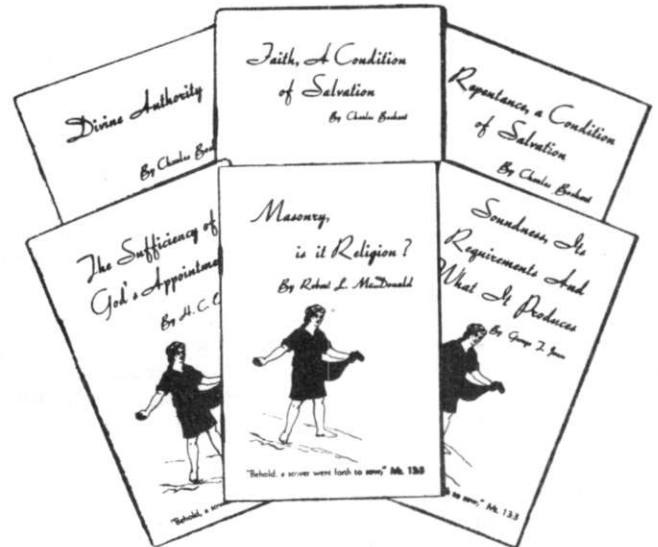 Divine Authority
By Charles
Faith, A Condition
of Salvation
By Charles Boshart
Repentance, a Condition
of Salvation
By Charles Boshart
The Sufficiency of
God's
By H. C.
Masonry,
is it Religion?
By Robert L. MacDonald
"Behold, a sower went forth to sow," Mt. 13:3
Soundness, Its
Requirements And
What It Produces
By George T. Jones
"Behold, a
sow," Mt. 13:3